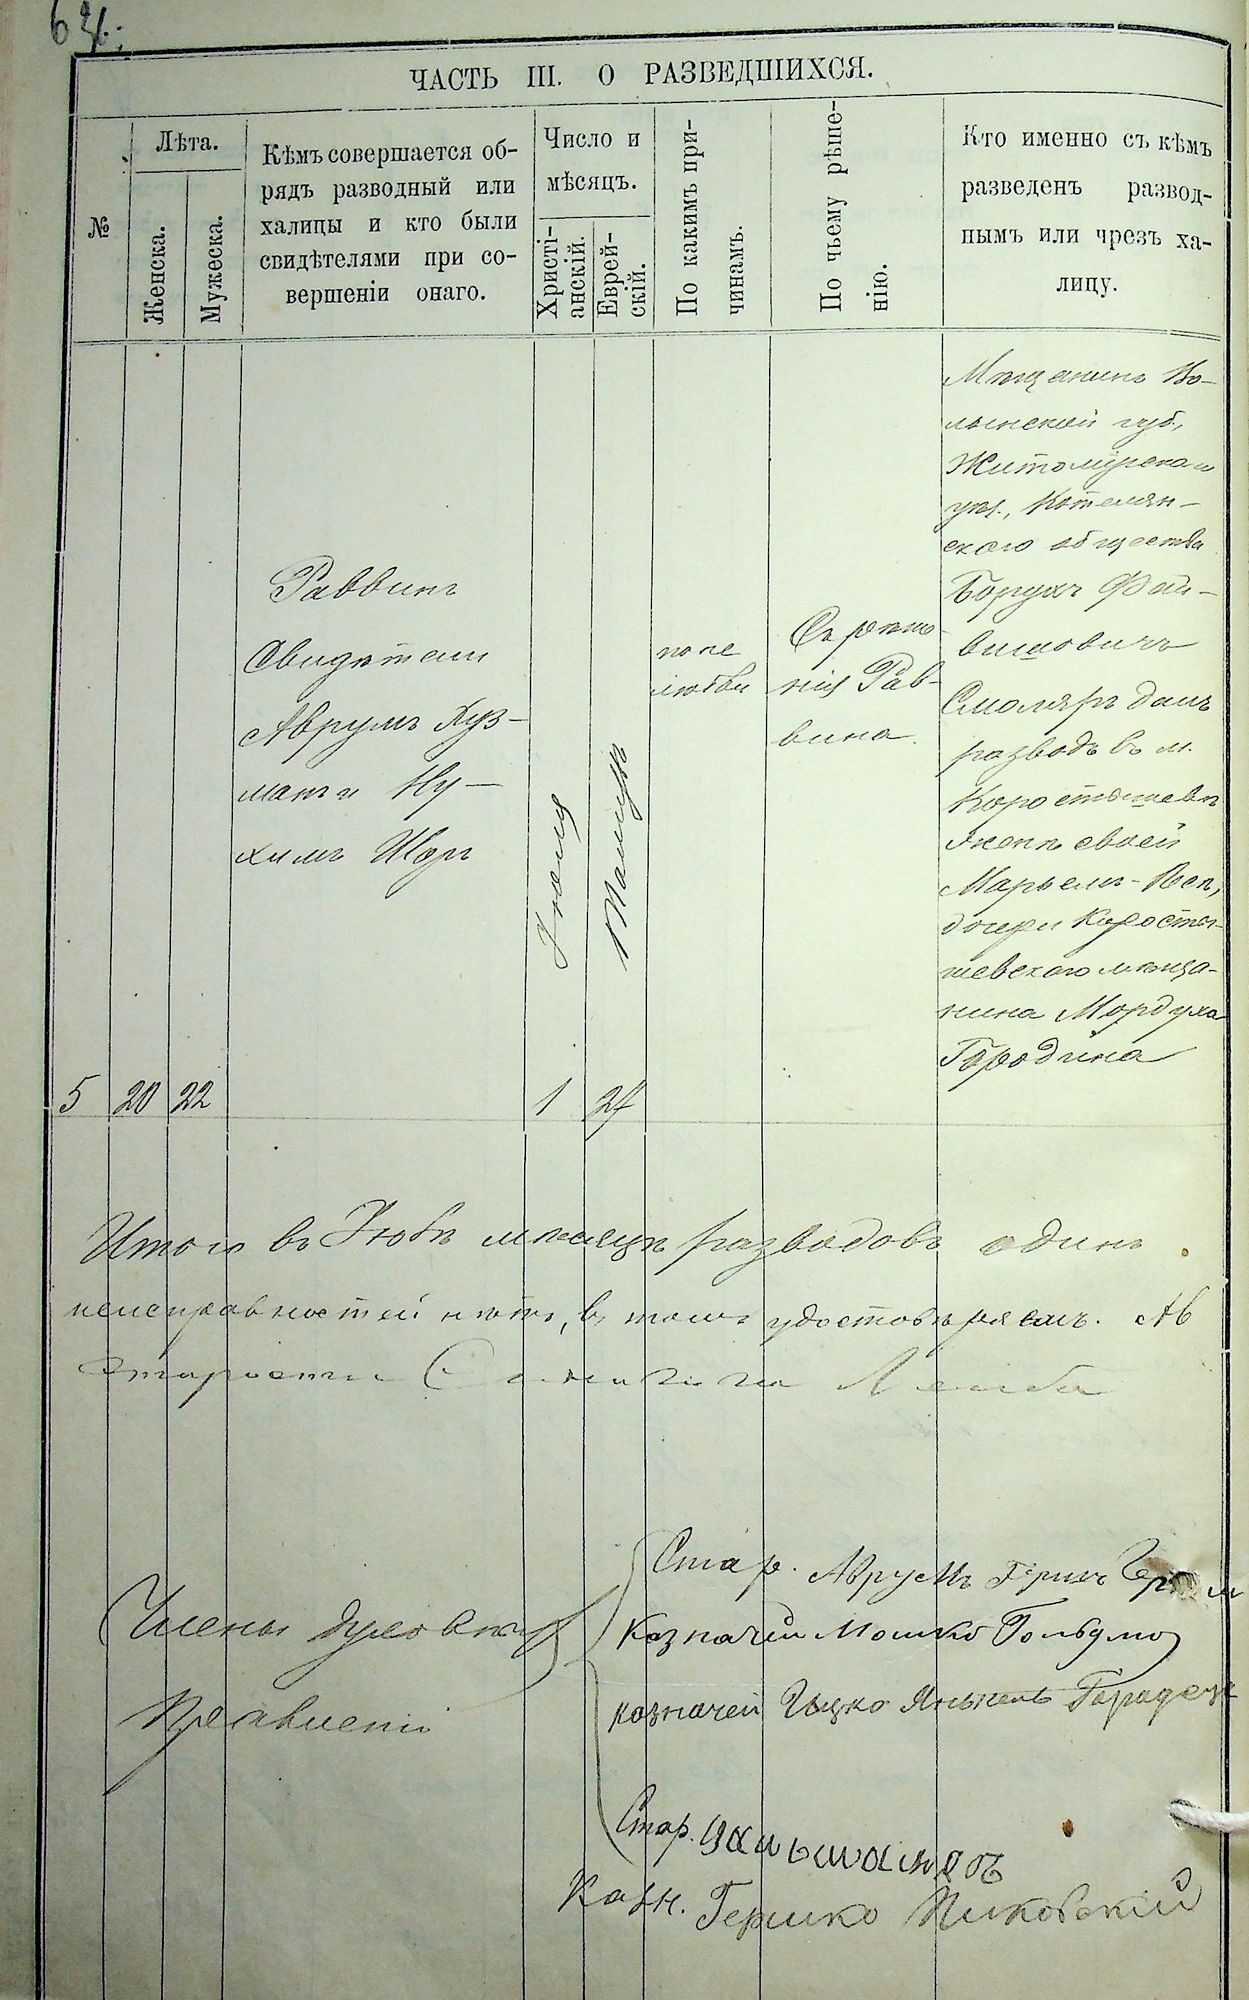 ЧАСТЬ III. О РАЗВЕДШИХСЯ.
№
Лѣта.
Женска.
Мужеска.
Кѣмъ совершается об-
рядъ разводный или
халицы и кто были
свидѣтелями при со-
вершеніи онаго.
Число и
мѣсяцъ.
Христі-
анскій.
Еврей-
скій.
По какимъ при-
чинамъ.
По чьему рѣше-
нію.
Кто именно съ кѣмъ
разведенъ развод-
нымъ или чрезъ ха-
лицу.
5
20
22
Раввинъ
Свидѣтели
Аврумъ Куз-
манъ и Ну-
химъ Шоръ
1
Іюля
24
Тамузъ
по не
любви
Съ рѣше-
нія Рав-
вина.
Мѣщанинъ Во-
лынской губ.,
Житомірскаго
уѣз., Котелян-
скаго общества
Борухъ Фай-
вишовичъ
Смоляръ далъ
разводъ въ м.
Коростышевѣ
женѣ своей
Марьемъ-Леѣ,
дочери Косты-
шевскаго мѣща-
нина Мордуха
Городина
Итого въ Іюлѣ мѣсяцѣ разводовъ одинъ.
неисправностей нѣтъ, въ томъ удостовѣряемъ.
Члены Духовнаго
Правленія
Стар. Аврумъ Гершъ
Казначей Мошко Гольдма
казначей Ицко Янкель Городецк
Стар.
Казн. Гершко Пиковскій